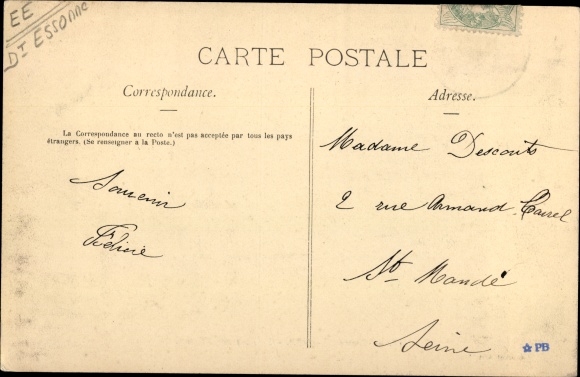 EE
Dt ESSONNE
CARTE POSTALE
Correspondance.
La Correspondance au recto n'est pas acceptée par tous les pays
étrangers. (Se renseigner à la Poste.)
Souvenir
Félicie
Adresse.
Madame Descouts
2 rue Armand Carrel
St Mandé
Seine
PB